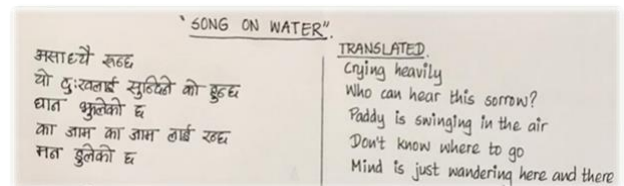 "SONG ON WATER".
असाध्यै रुन्छ
यो दुःखलाई सुनिदिने को हुन्छ
धान झुलेको छ
का जाम का जाम लाई रन्छ
मन डुलेको छ
TRANSLATED.
Crying heavily
Who can hear this sorrow?
Paddy is swinging in the air
Don't know where to go
Mind is just wandering here and there